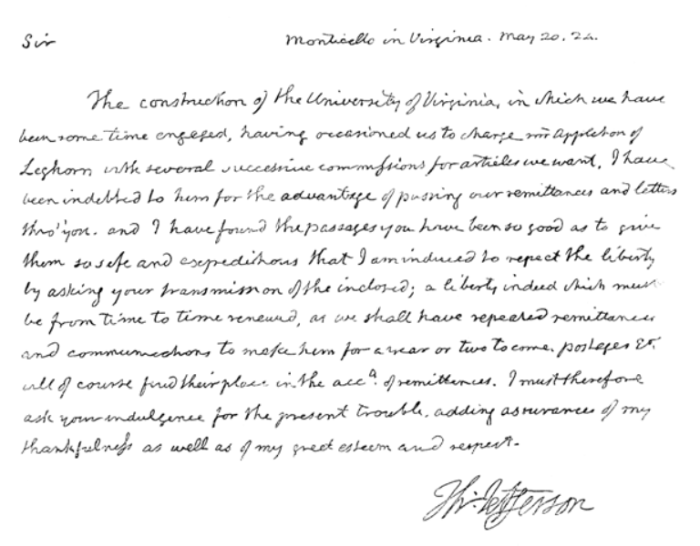 Sir Monticello in Virginia. May 20. 24.
The construction of the University of Virginia, in which we have
been some time engaged, having occasioned us to charge mr Appleton of
Leghorn with several successive commissions for articles we want, I have
been indebted to him for the advantage of passing our remittances and letters
thro' you. and I have found the passages you have been so good as to give
them so safe and expeditious that I am induced to repeat the liberty
by asking your transmission of the inclosed; a liberty indeed which must
be from time to time renewed, as we shall have repeated remittances
and communications to make him for a year or two to come. postages &c.
will of course find their place in the accᵗ. of remittances. I must therefore
ask your indulgence for the present trouble, adding assurances of my
thankfulness as well as of my great esteem and respect.
Th: Jefferson